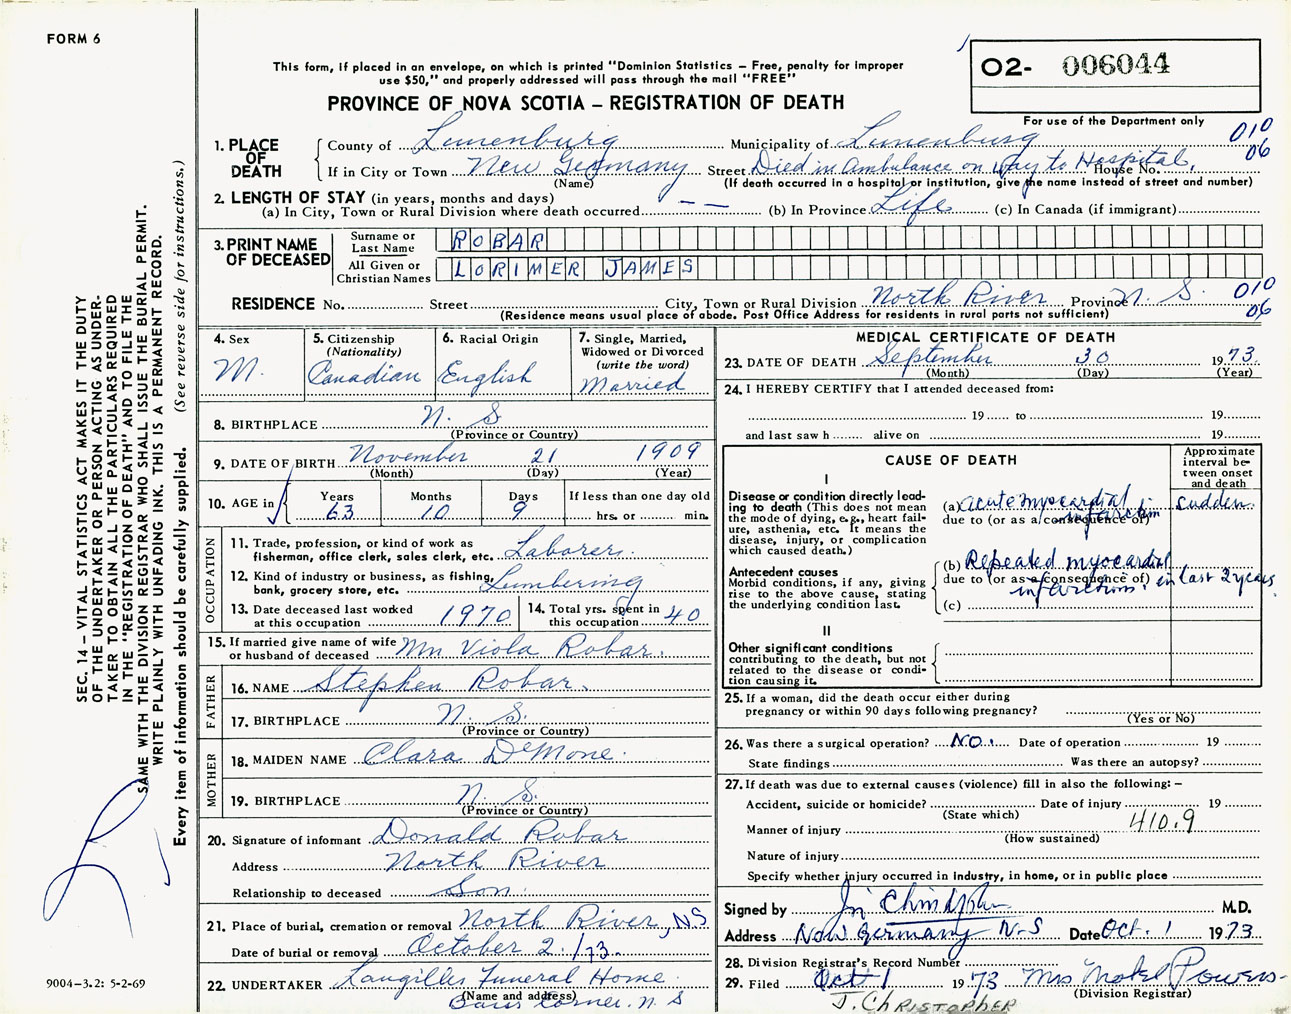 FORM 6
This form, if placed in an envelope, on which is printed "Dominion Statistics – Free, penalty for improper
use $50," and properly addressed will pass through the mail "FREE"
PROVINCE OF NOVA SCOTIA – REGISTRATION OF DEATH
O2- 006044
For use of the Department only
1. PLACE OF DEATH
County of Lunenburg Municipality of Lunenburg 010
If in City or Town New Germany Street Died in Ambulance on way to Hospital. House No. 06
(Name) (If death occurred in a hospital or institution, give the name instead of street and number)
2. LENGTH OF STAY (in years, months and days)
(a) In City, Town or Rural Division where death occurred — — (b) In Province Life (c) In Canada (if immigrant)
3. PRINT NAME OF DECEASED
Surname or Last Name ROBAR
All Given or Christian Names LORIMER JAMES
RESIDENCE No. Street City, Town or Rural Division North River Province N. S. 010
(Residence means usual place of abode. Post Office Address for residents in rural parts not sufficient) 06
4. Sex
M.
5. Citizenship
(Nationality)
Canadian
6. Racial Origin
English
7. Single, Married,
Widowed or Divorced
(write the word)
Married
8. BIRTHPLACE N. S
(Province or Country)
9. DATE OF BIRTH November 21 1909
(Month) (Day) (Year)
10. AGE in
Years Months Days If less than one day old
63 10 9 hrs. or min.
OCCUPATION
11. Trade, profession, or kind of work as
fisherman, office clerk, sales clerk, etc. Laborer.
12. Kind of industry or business, as fishing,
bank, grocery store, etc. Lumbering
13. Date deceased last worked
at this occupation 1970
14. Total yrs. spent in
this occupation 40
15. If married give name of wife
or husband of deceased Mrs Viola Robar.
FATHER
16. NAME Stephen Robar.
17. BIRTHPLACE N. S.
(Province or Country)
MOTHER
18. MAIDEN NAME Clara DeMone.
19. BIRTHPLACE N. S.
(Province or Country)
20. Signature of informant Donald Robar
Address North River
Relationship to deceased Son
21. Place of burial, cremation or removal North River, NS
Date of burial or removal October 2./73.
22. UNDERTAKER Langilles Funeral Home
(Name and address)
Corner. N. S
MEDICAL CERTIFICATE OF DEATH
23. DATE OF DEATH September 30 1973.
(Month) (Day) (Year)
24. I HEREBY CERTIFY that I attended deceased from:
19 to 19
and last saw h alive on 19
CAUSE OF DEATH
Approximate
interval be-
tween onset
and death
I
Disease or condition directly lead-
ing to death (This does not
mean the mode of dying, e.g., heart fail-
ure, asthenia, etc. It means the
disease, injury, or complication
which caused death.)
(a) acute myocardial infarction sudden.
due to (or as a consequence of)
Antecedent causes
Morbid conditions, if any, giving
rise to the above cause, stating
the underlying condition last.
(b) Repeated myocardial
due to (or as a consequence of)
infarctions. in last 2 years.
(c)
II
Other significant conditions
contributing to the death, but not
related to the disease or condi-
tion causing it.
25. If a woman, did the death occur either during
pregnancy or within 90 days following pregnancy?
(Yes or No)
26. Was there a surgical operation? NO. Date of operation 19
State findings Was there an autopsy?
27. If death was due to external causes (violence) fill in also the following: –
Accident, suicide or homicide? Date of injury 19
(State which)
Manner of injury 410.9
(How sustained)
Nature of injury
Specify whether injury occurred in industry, in home, or in public place
Signed by M.D.
Address New Germany N-S Date Oct. 1 1973
28. Division Registrar's Record Number
29. Filed Oct 1 1973 Mrs Powers
(Division Registrar)
J. CHRISTOPHER
SEC. 14 – VITAL STATISTICS ACT MAKES IT THE DUTY
OF THE UNDERTAKER OR PERSON ACTING AS UNDER-
TAKER TO OBTAIN ALL THE PARTICULARS REQUIRED
IN THE "REGISTRATION OF DEATH" AND TO FILE THE
SAME WITH THE DIVISION REGISTRAR WHO SHALL ISSUE THE BURIAL PERMIT.
WRITE PLAINLY WITH UNFADING INK. THIS IS A PERMANENT RECORD.
Every item of information should be carefully supplied. (See reverse side for instructions.)
9004–3.2: 5-2-69